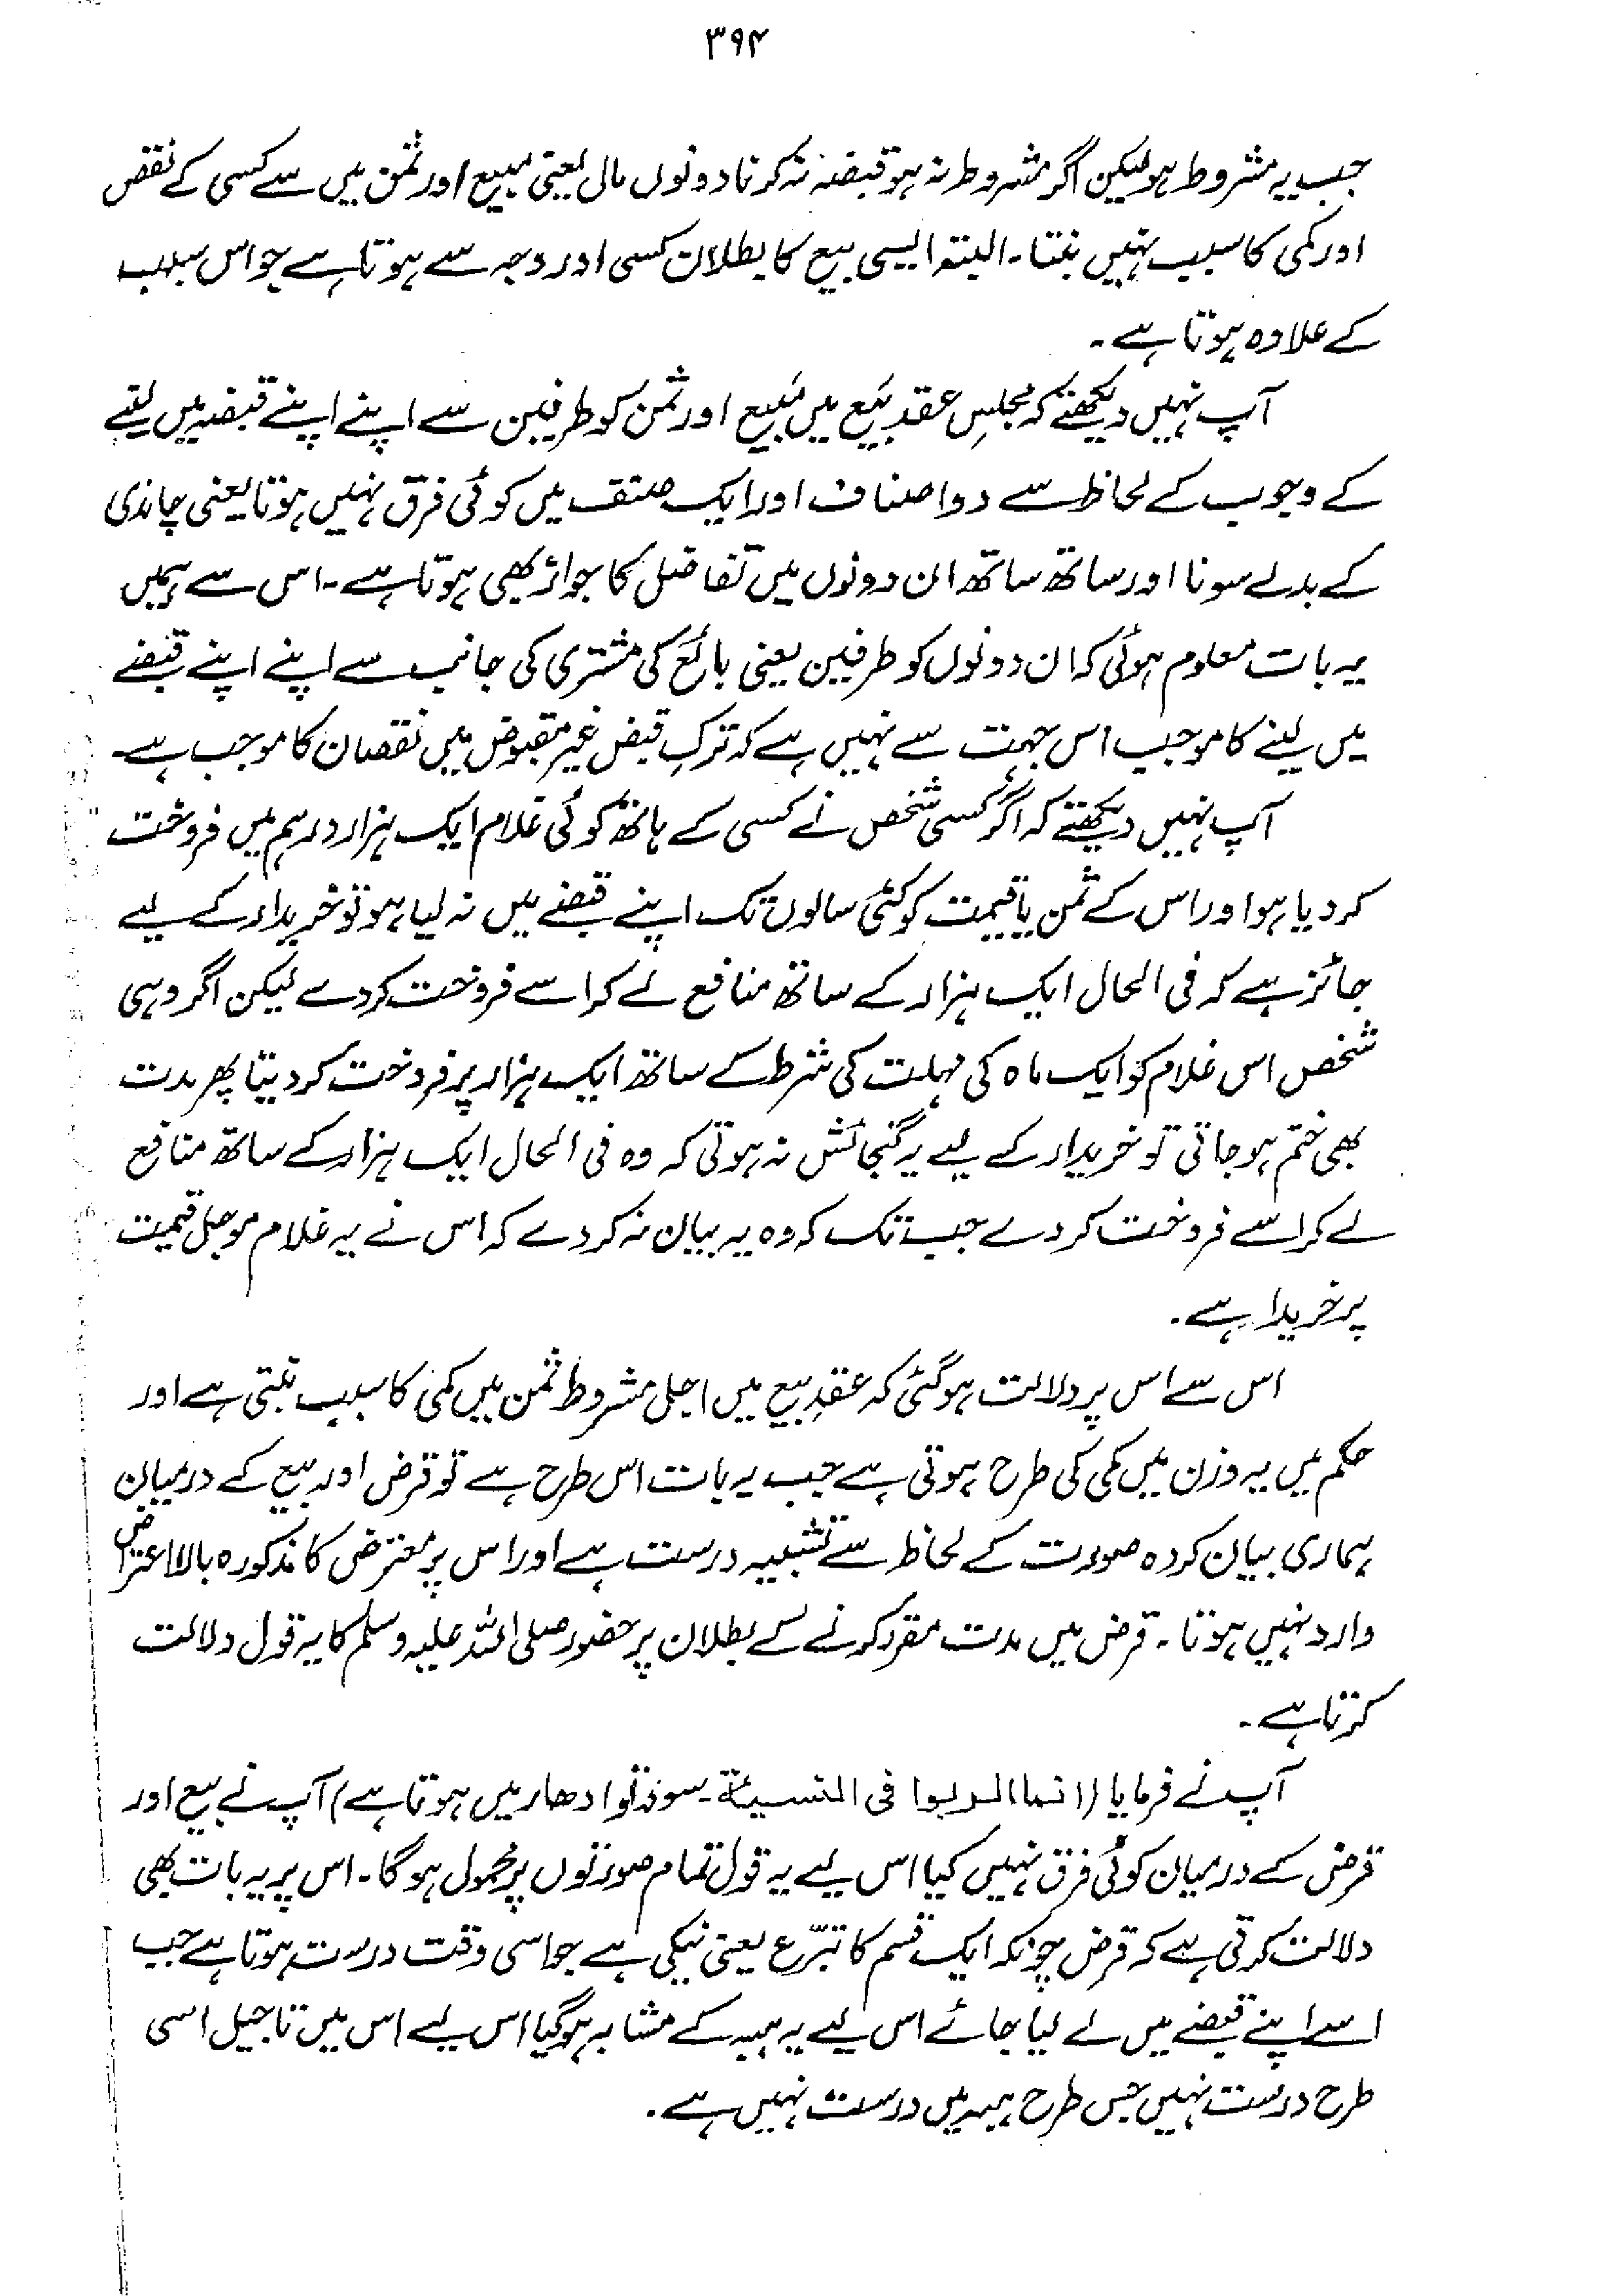 ۳۹۴
جب یہ مشروط ہو لیکن اگر مشروط نہ ہو تو قبضہ نہ کرنا دونوں مال یعنی مبیع اور ثمن میں سے کسی کے نقص
اور کمی کا سبب نہیں بنتا۔ البتہ ایسی بیع کا بطلان کسی اور وجہ سے ہوتا ہے جو اس سبب
کے علاوہ ہوتا ہے۔
آپ نہیں دیکھتے کہ مجلسِ عقد بیع میں مبیع اور ثمن کو طرفین سے اپنے اپنے قبضہ میں لینے
کے وجوب کے لحاظ سے دو اصناف اور ایک صنف میں کوئی فرق نہیں ہوتا یعنی چاندی
کے بدلے سونا اور ساتھ ساتھ ان دونوں میں تفاضل کا جواز بھی ہوتا ہے۔ اس سے ہمیں
یہ بات معلوم ہوئی کہ ان دونوں کو طرفین یعنی بائع کی مشتری کی جانب سے اپنے اپنے قبضے
میں لینے کا موجب اس جہت سے نہیں ہے کہ ترکِ قبض غیر مقبوض میں نقصان کا موجب ہے۔
آپ نہیں دیکھتے کہ اگر کسی شخص نے کسی کے ہاتھ کوئی غلام ایک ہزار درہم میں فروخت
کر دیا ہو اور اس کے ثمن یا قیمت کو کئی سالوں تک اپنے قبضے میں نہ لیا ہو تو خریدار کے لیے
جائز ہے کہ فی الحال ایک ہزار کے ساتھ منافع لے کر اسے فروخت کر دے لیکن اگر وہی
شخص اس غلام کو ایک ماہ کی مہلت کی شرط کے ساتھ ایک ہزار پر فروخت کر دیتا پھر مدت
بھی ختم ہو جاتی تو خریدار کے لیے یہ گنجائش نہ ہوتی کہ وہ فی الحال ایک ہزار کے ساتھ منافع
لے کر اسے فروخت کر دے جب تک کہ وہ یہ بیان نہ کر دے کہ اس نے یہ غلام موجل قیمت
پر خریدا ہے۔
اس سے اس پر دلالت ہو گئی کہ عقدِ بیع میں اجل مشروط ثمن میں کمی کا سبب بنتی ہے اور
حکم میں یہ وزن میں کمی کی طرح ہوتی ہے جب یہ بات اس طرح ہے تو قرض اور بیع کے درمیان
ہماری بیان کردہ صورت کے لحاظ سے تشبیہ درست ہے اور اس پر معترض کا مذکورہ بالا اعتراض
وارد نہیں ہوتا۔ قرض میں مدت مقرر کرنے کے بطلان پر حضور صلی اللہ علیہ وسلم کا یہ قول دلالت
کرتا ہے۔
آپ نے فرمایا (انما الربوا فی النسیئۃ۔ سود تو ادھار میں ہوتا ہے) آپ نے بیع اور
قرض کے درمیان کوئی فرق نہیں کیا اس لیے یہ قول تمام صورتوں پر محمول ہوگا۔ اس پر یہ بات بھی
دلالت کرتی ہے کہ قرض چونکہ ایک قسم کا تبرّع یعنی نیکی ہے جو اسی وقت درست ہوتا ہے جب
اسے اپنے قبضے میں لے لیا جائے اس لیے یہ ہبہ کے مشابہ ہو گیا اس لیے اس میں تاجیل اسی
طرح درست نہیں جس طرح ہبہ میں درست نہیں ہے۔